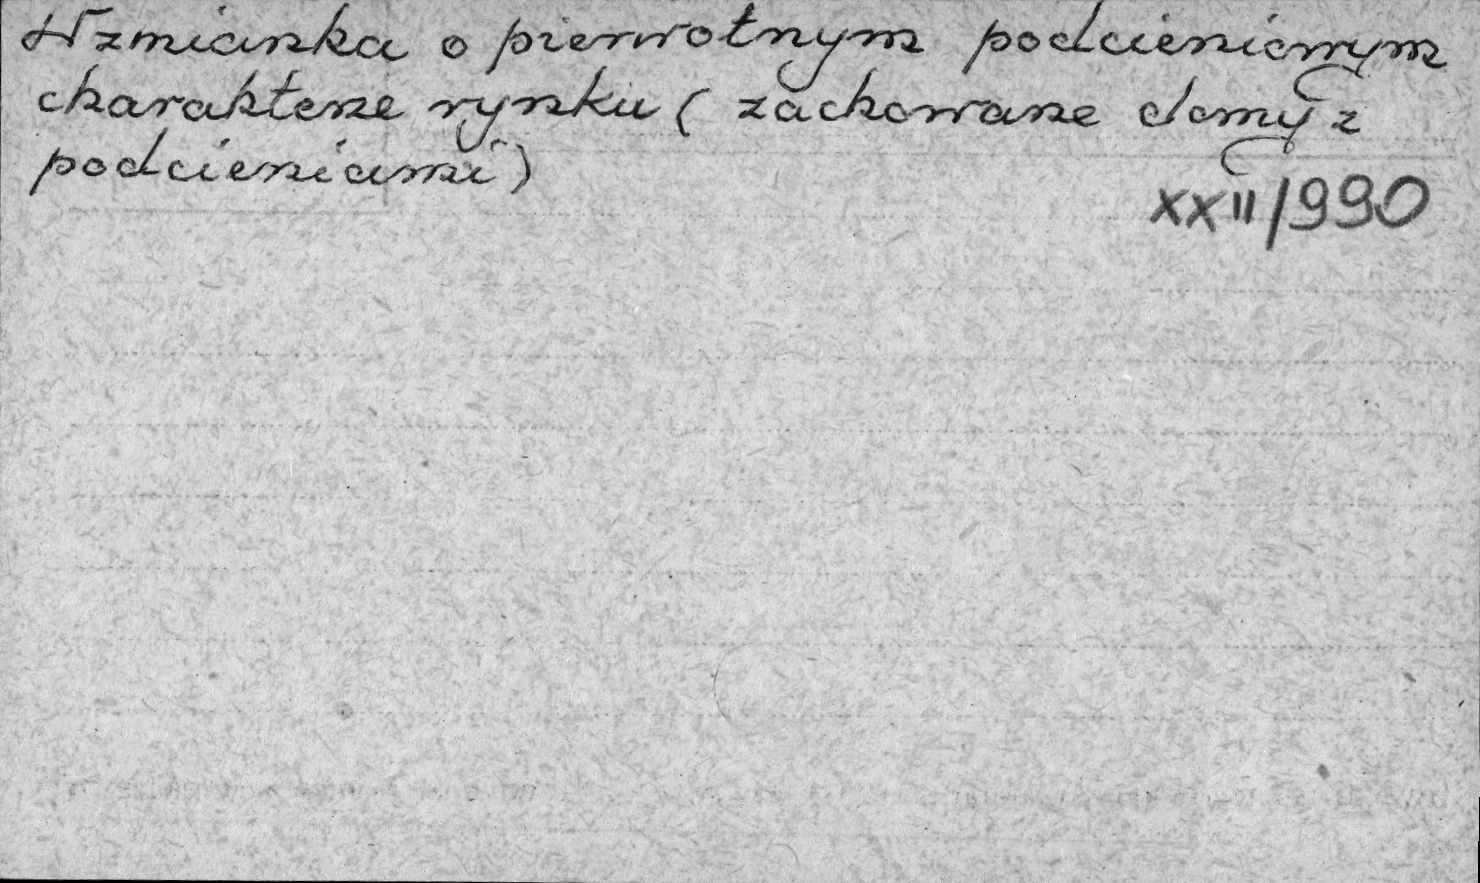 Wzmianka o pierwotnym podcieniowym
charakterze rynku (zachowane domy z
podcieniami)
XXII/990